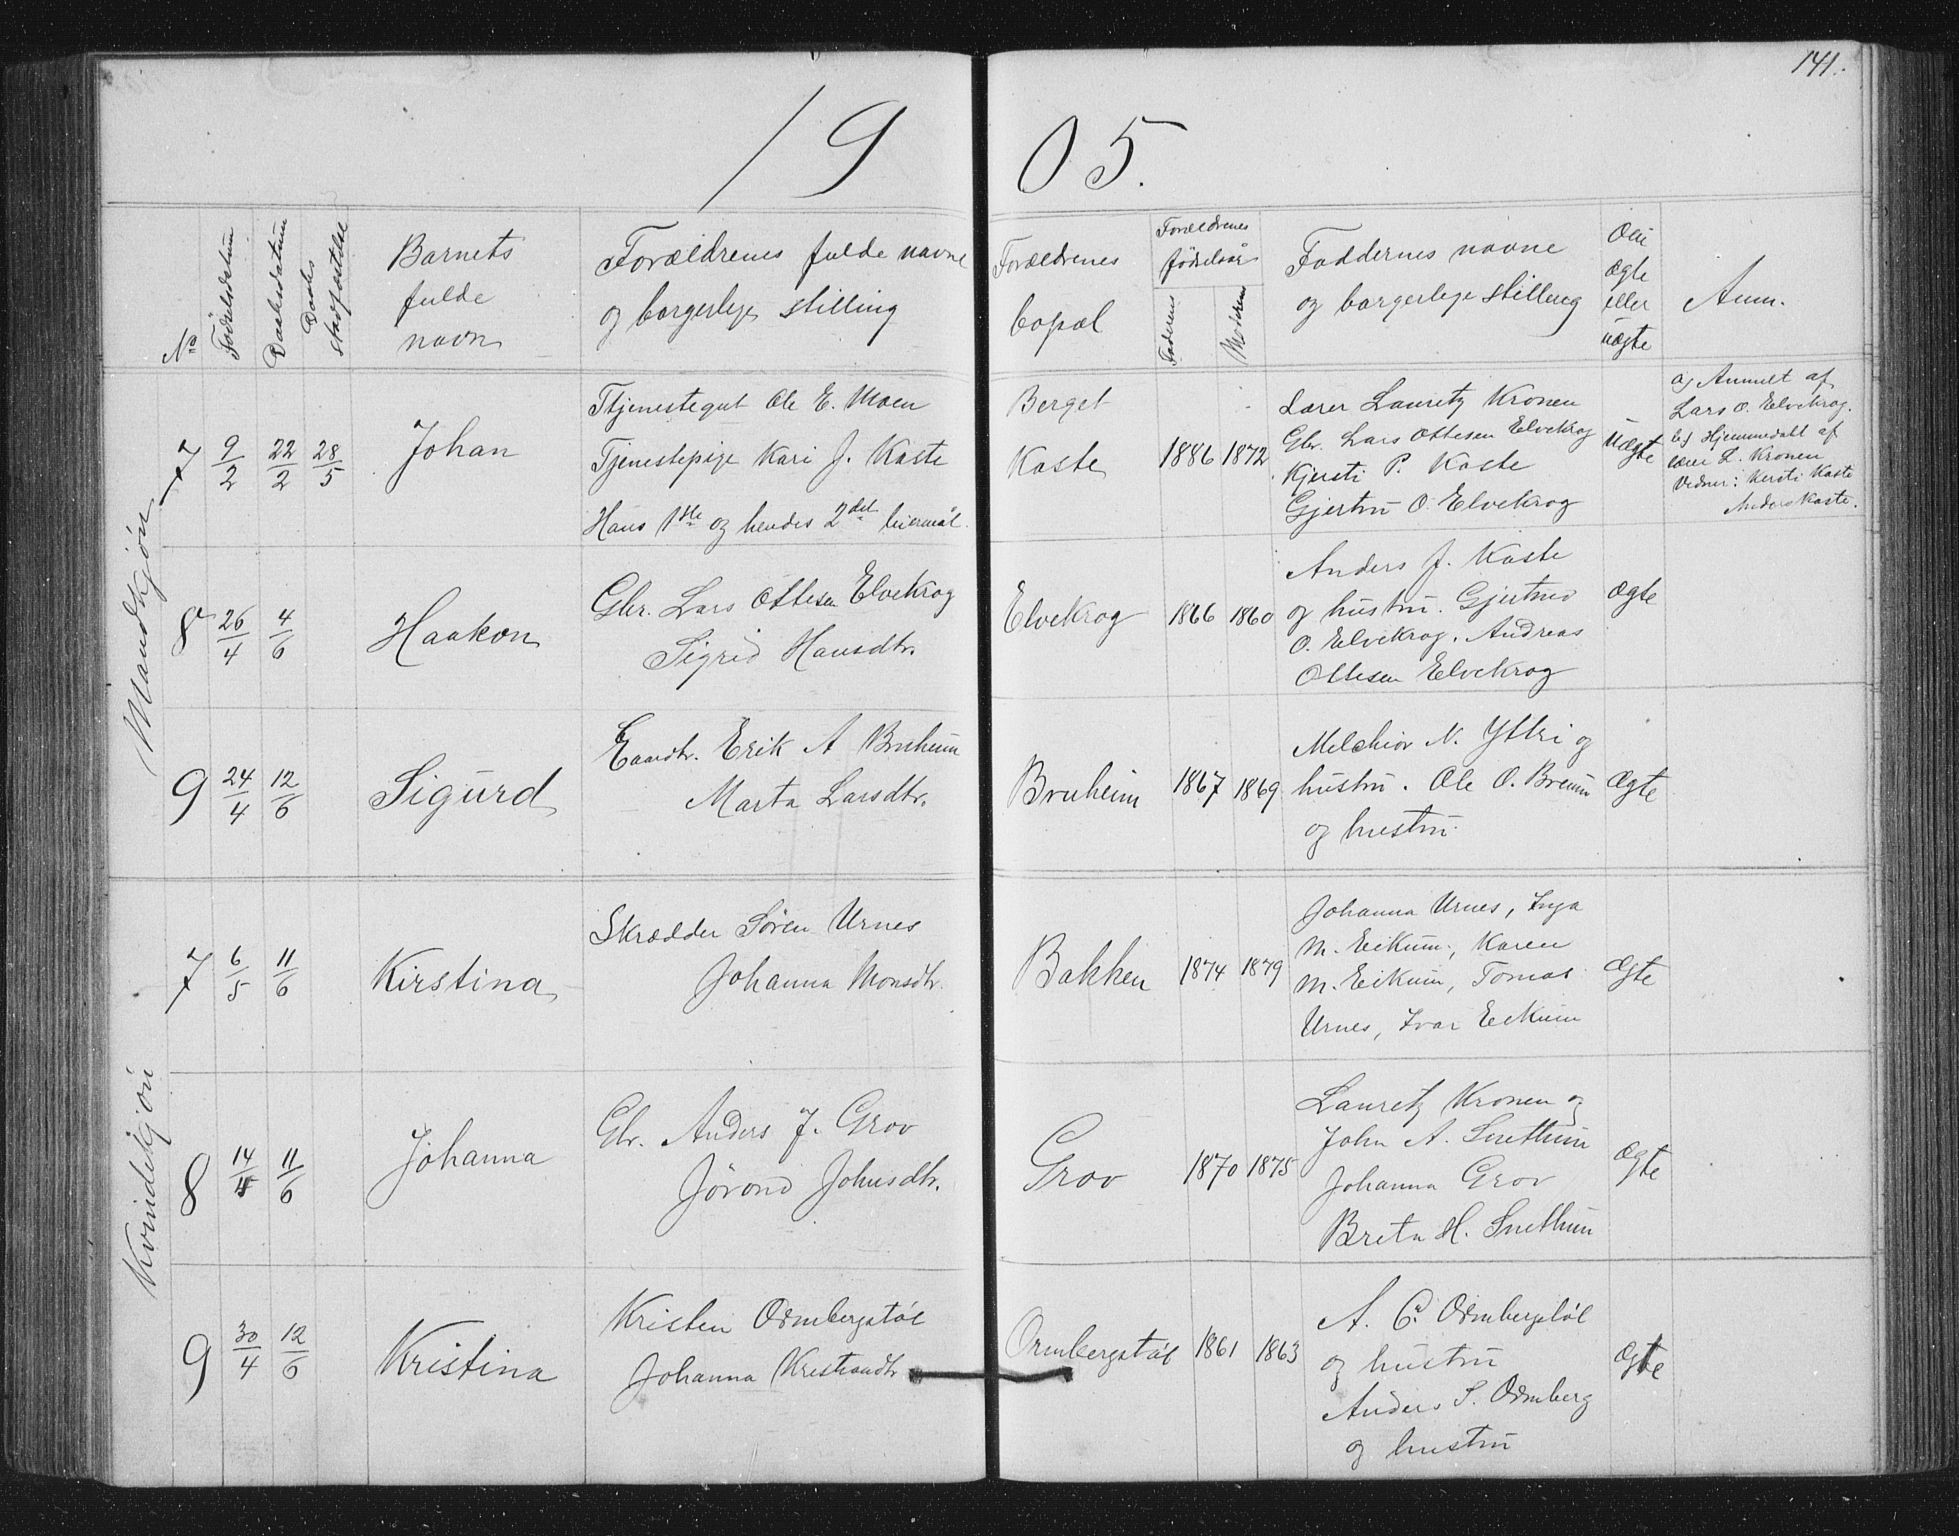 141.
1905.
No
Fødselsdatum
Daabsdatum
Daabs stadfæstelse
Barnets
fulde
navn
Forældrenes fulde navne
og borgerlige stilling
Forældrenes
bopæl
Forældrenes
fødselsår
Faderens
Moderens
Faddernes navne
og borgerlige stilling
Om
ægte
eller
uægte
Anm.
Mandkjøn
7 9/2 22/2 28/5 Johan
Tjenestegut Ole E. Moen
Tjenestepige Kari J. Kaste
Hans 1ste og hendes 2det leiermål.
Berget
Kaste
1886 1872
Lærer Lauritz Kronen
Gbr. Lars Ottesen Elvekrog
Kjersti P. Kaste
Gjertru O. Elvekrog
Uægte
a) Anmelt af
Lars O. Elvekrog.
b) Hjemmedøbt af
lærer L. Kronen
Vidner: Kersti Kaste
Anders Kaste.
8 26/4 4/6 Haakon
Gbr. Lars Ottesen Elvekrog
Sigrid Hansdtr.
Elvekrog 1866 1860
Anders J. Kaste
og hustru. Gjertrud
O. Elvekrog. Andreas
Ottesen Elvekrog
Ægte
9 24/4 12/6 Sigurd
Erik A Bruheim
Marta Larsdtr.
Bruheim 1867 1869
Melchior N. Yttri og
hustru. Ole O. Breum
og hustru.
Ægte
Kvindekjøn
7 6/5 11/6 Kirstina
Skrædder Søren Urnes
Johanna Monsdtr.
Bakken 1874 1879
Johanna Urnes, Inga
M. Eikum, Karen
M. Eikum, Tomas
Urnes, Ivar Eikum
Ægte
8 14/4 11/6 Johanna
Gbr. Anders J. Grov
Jørond Johnsdtr.
Grov 1870 1875
Lauretz Kronen og
John A. Snethun
Johanna Grov
Breta H. Snethun
Ægte
9 30/4 12/6 Kristina
Kristen Ormbergstøl
Johanna Kristiandtr
Ormbergstøl 1861 1863
A. C. Ormbergstøl
og hustru
Anders S. Ormberg
og hustru
Ægte